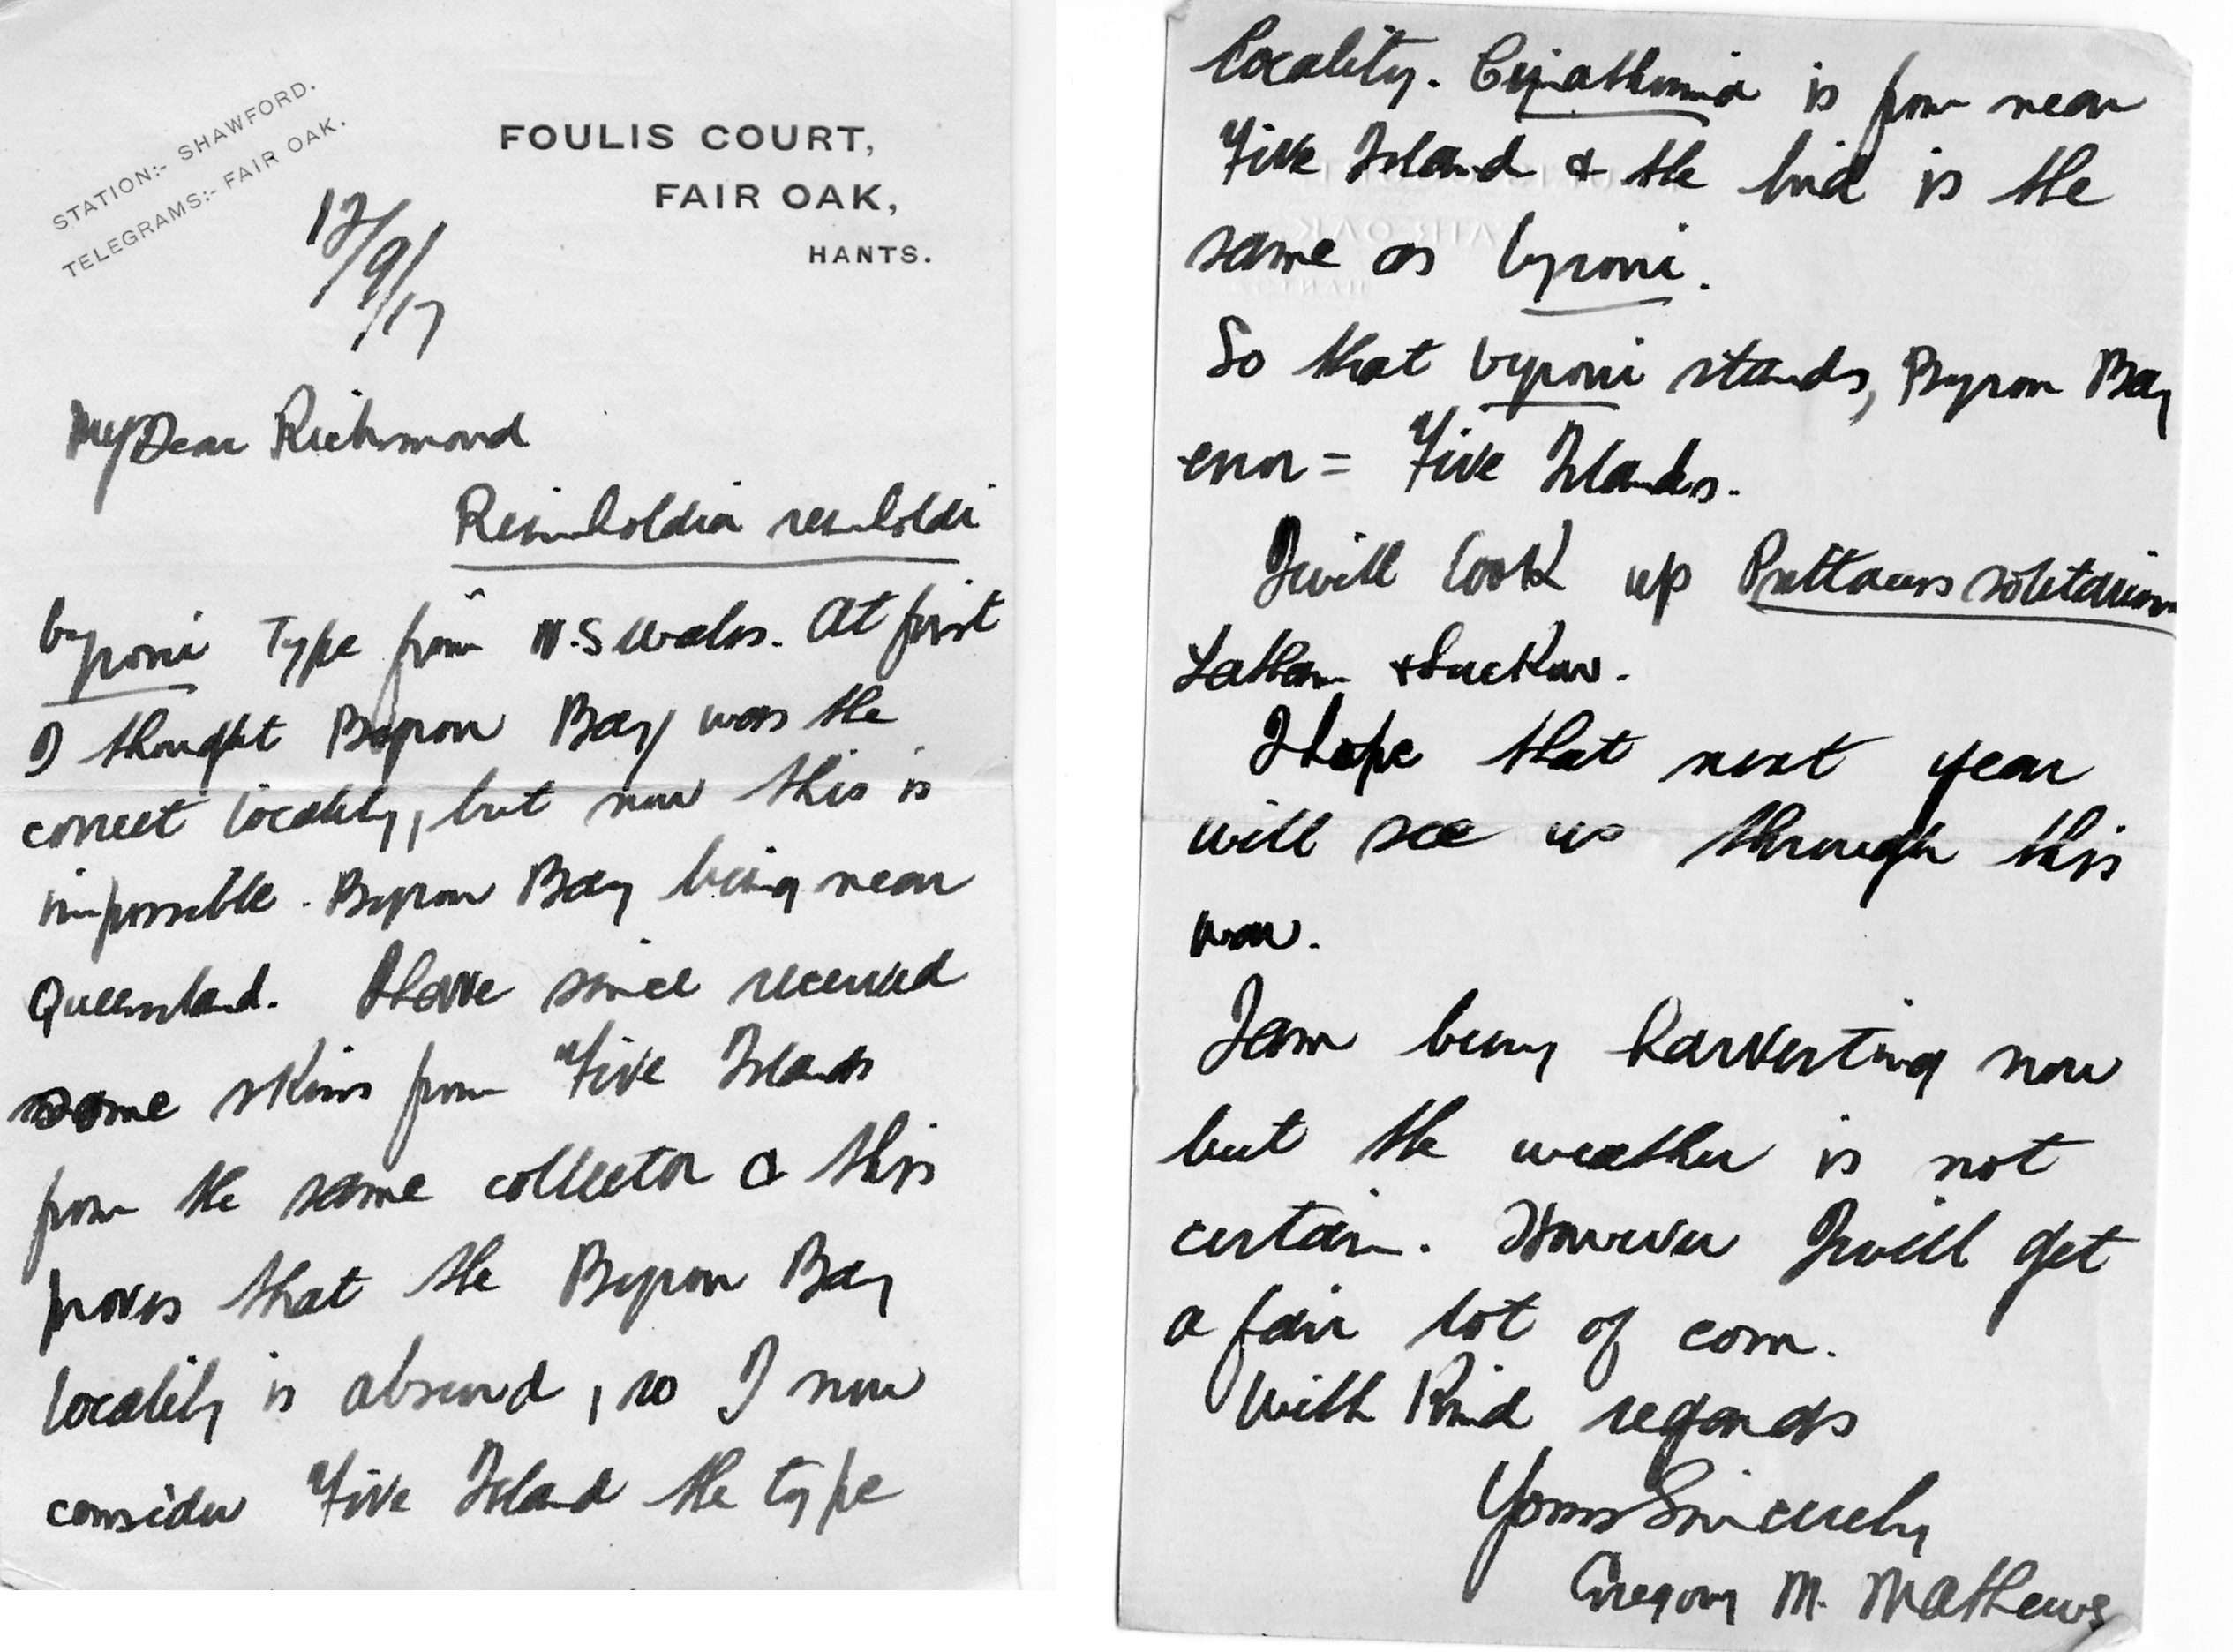 STATION:- SHAWFORD.
TELEGRAMS:- FAIR OAK.
FOULIS COURT,
FAIR OAK,
HANTS.
12/9/17
My Dear Richmond
Reinholdia reinholdi
byroni Type from N.S Wales. At first
I thought Byron Bay was the
correct locality, but now this is
impossible. Byron Bay being near
Queensland. I have since received
some skins from Five Islands
from the same collector & this
proves that the Byron Bay
locality is absurd, so I now
consider Five Island the type
locality. is from near
Five Island & the bird is the
same as byroni.
So that byroni stands, Byron Bay
error = Five Islands.
I will look up Psittacus solitarius
Latham & Suckow.
I hope that next year
will see us through this
war.
I am busy harvesting now
but the weather is not
certain. However I will get
a fair lot of corn.
With kind regards
Yours Sincerely
Gregory M. Mathews